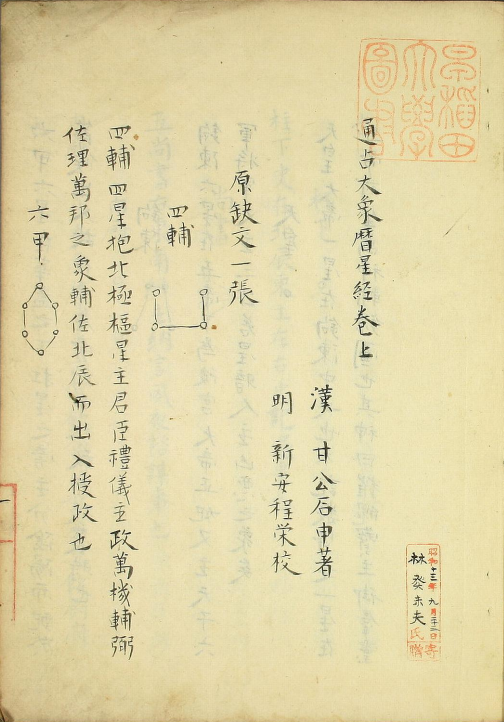 通占大象曆星經卷上
漢 甘公石申著
明 新安程栄校
原缺文一張
四輔
四輔四星抱北極樞星主君臣禮儀主政萬機輔弼
佐理萬邦之象輔佐北辰而出入授政也
六甲
早稲田
大學
圖書
昭和十三年九月二十三日寄
林癸未夫
氏贈